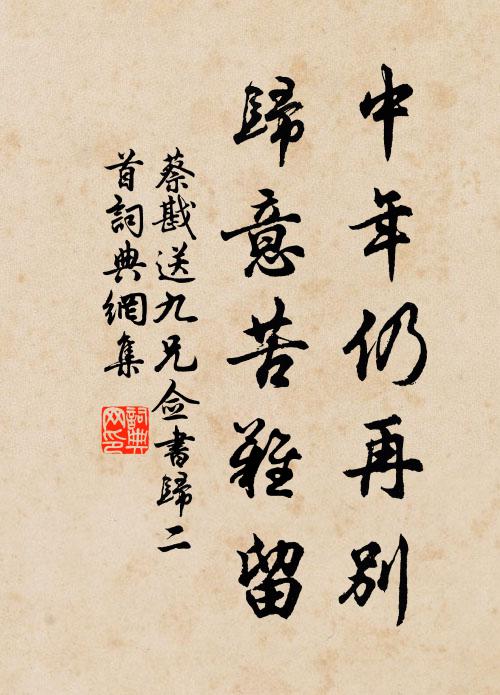 中年仍再別
歸意苦難留
蔡戡送九兄僉書歸二
首詞典網集
詞典網印